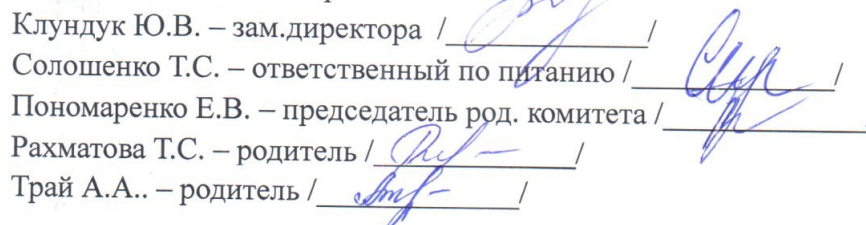 Клундук Ю.В. – зам.директора /__________/
Солошенко Т.С. – ответственный по питанию /__________/
Пономаренко Е.В. – председатель род. комитета /__________
Рахматова Т.С. – родитель /__________/
Трай А.А.. – родитель /__________/